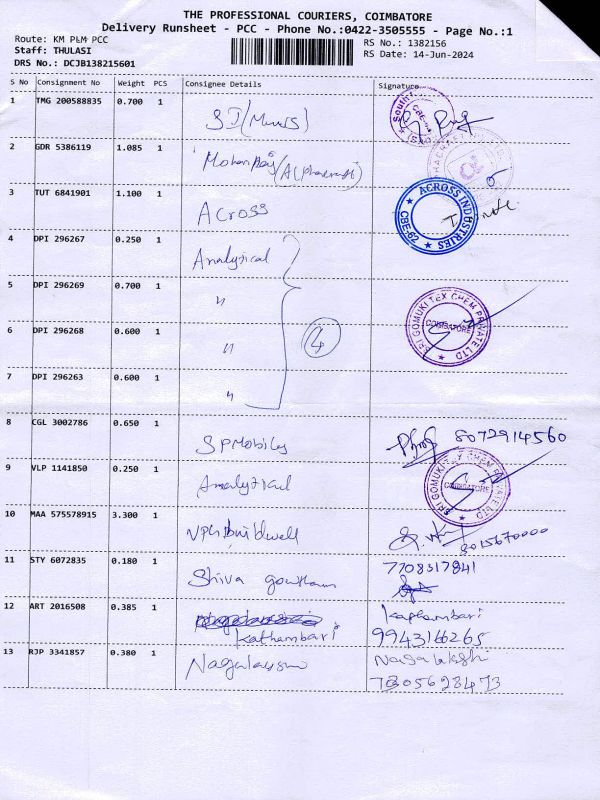 THE PROFESSIONAL COURIERS, COIMBATORE
Delivery Runsheet - PCC - Phone No.:0422-3505555 - Page No.:1
Route: KM P&M PCC
RS No.: 1382156
Staff: THULASI
RS Date: 14-Jun-2024
DRS No.: DCJB138215601
S No Consignment No Weight PCS Consignee Details Signature
1 TMG 200588835 0.700 1
2 GDR 5386119 1.085 1
3 TUT 6841901 1.100 1 Across
ACROSS INDUSTRIES CBE-62
4 DPI 296267 0.250 1 Analytical
5 DPI 296269 0.700 1 "
SRI GOMUKI TEX CHEM PRIVATE LTD COIMBATORE
6 DPI 296268 0.600 1 " 4
7 DPI 296263 0.600 1 "
8 CGL 3002786 0.650 1 SP Mobiles 8072914560
9 VLP 1141850 0.250 1 Analytical
SRI GOMUKI TEX CHEM PRIVATE LTD COIMBATORE
10 MAA 575578915 3.300 1 8015670000
11 STY 6072835 0.180 1 Shiva gowtham 7708317841
12 ART 2016508 0.385 1 Kathambari Kathambari
9943166265
13 RJP 3341857 0.380 1
7305623473